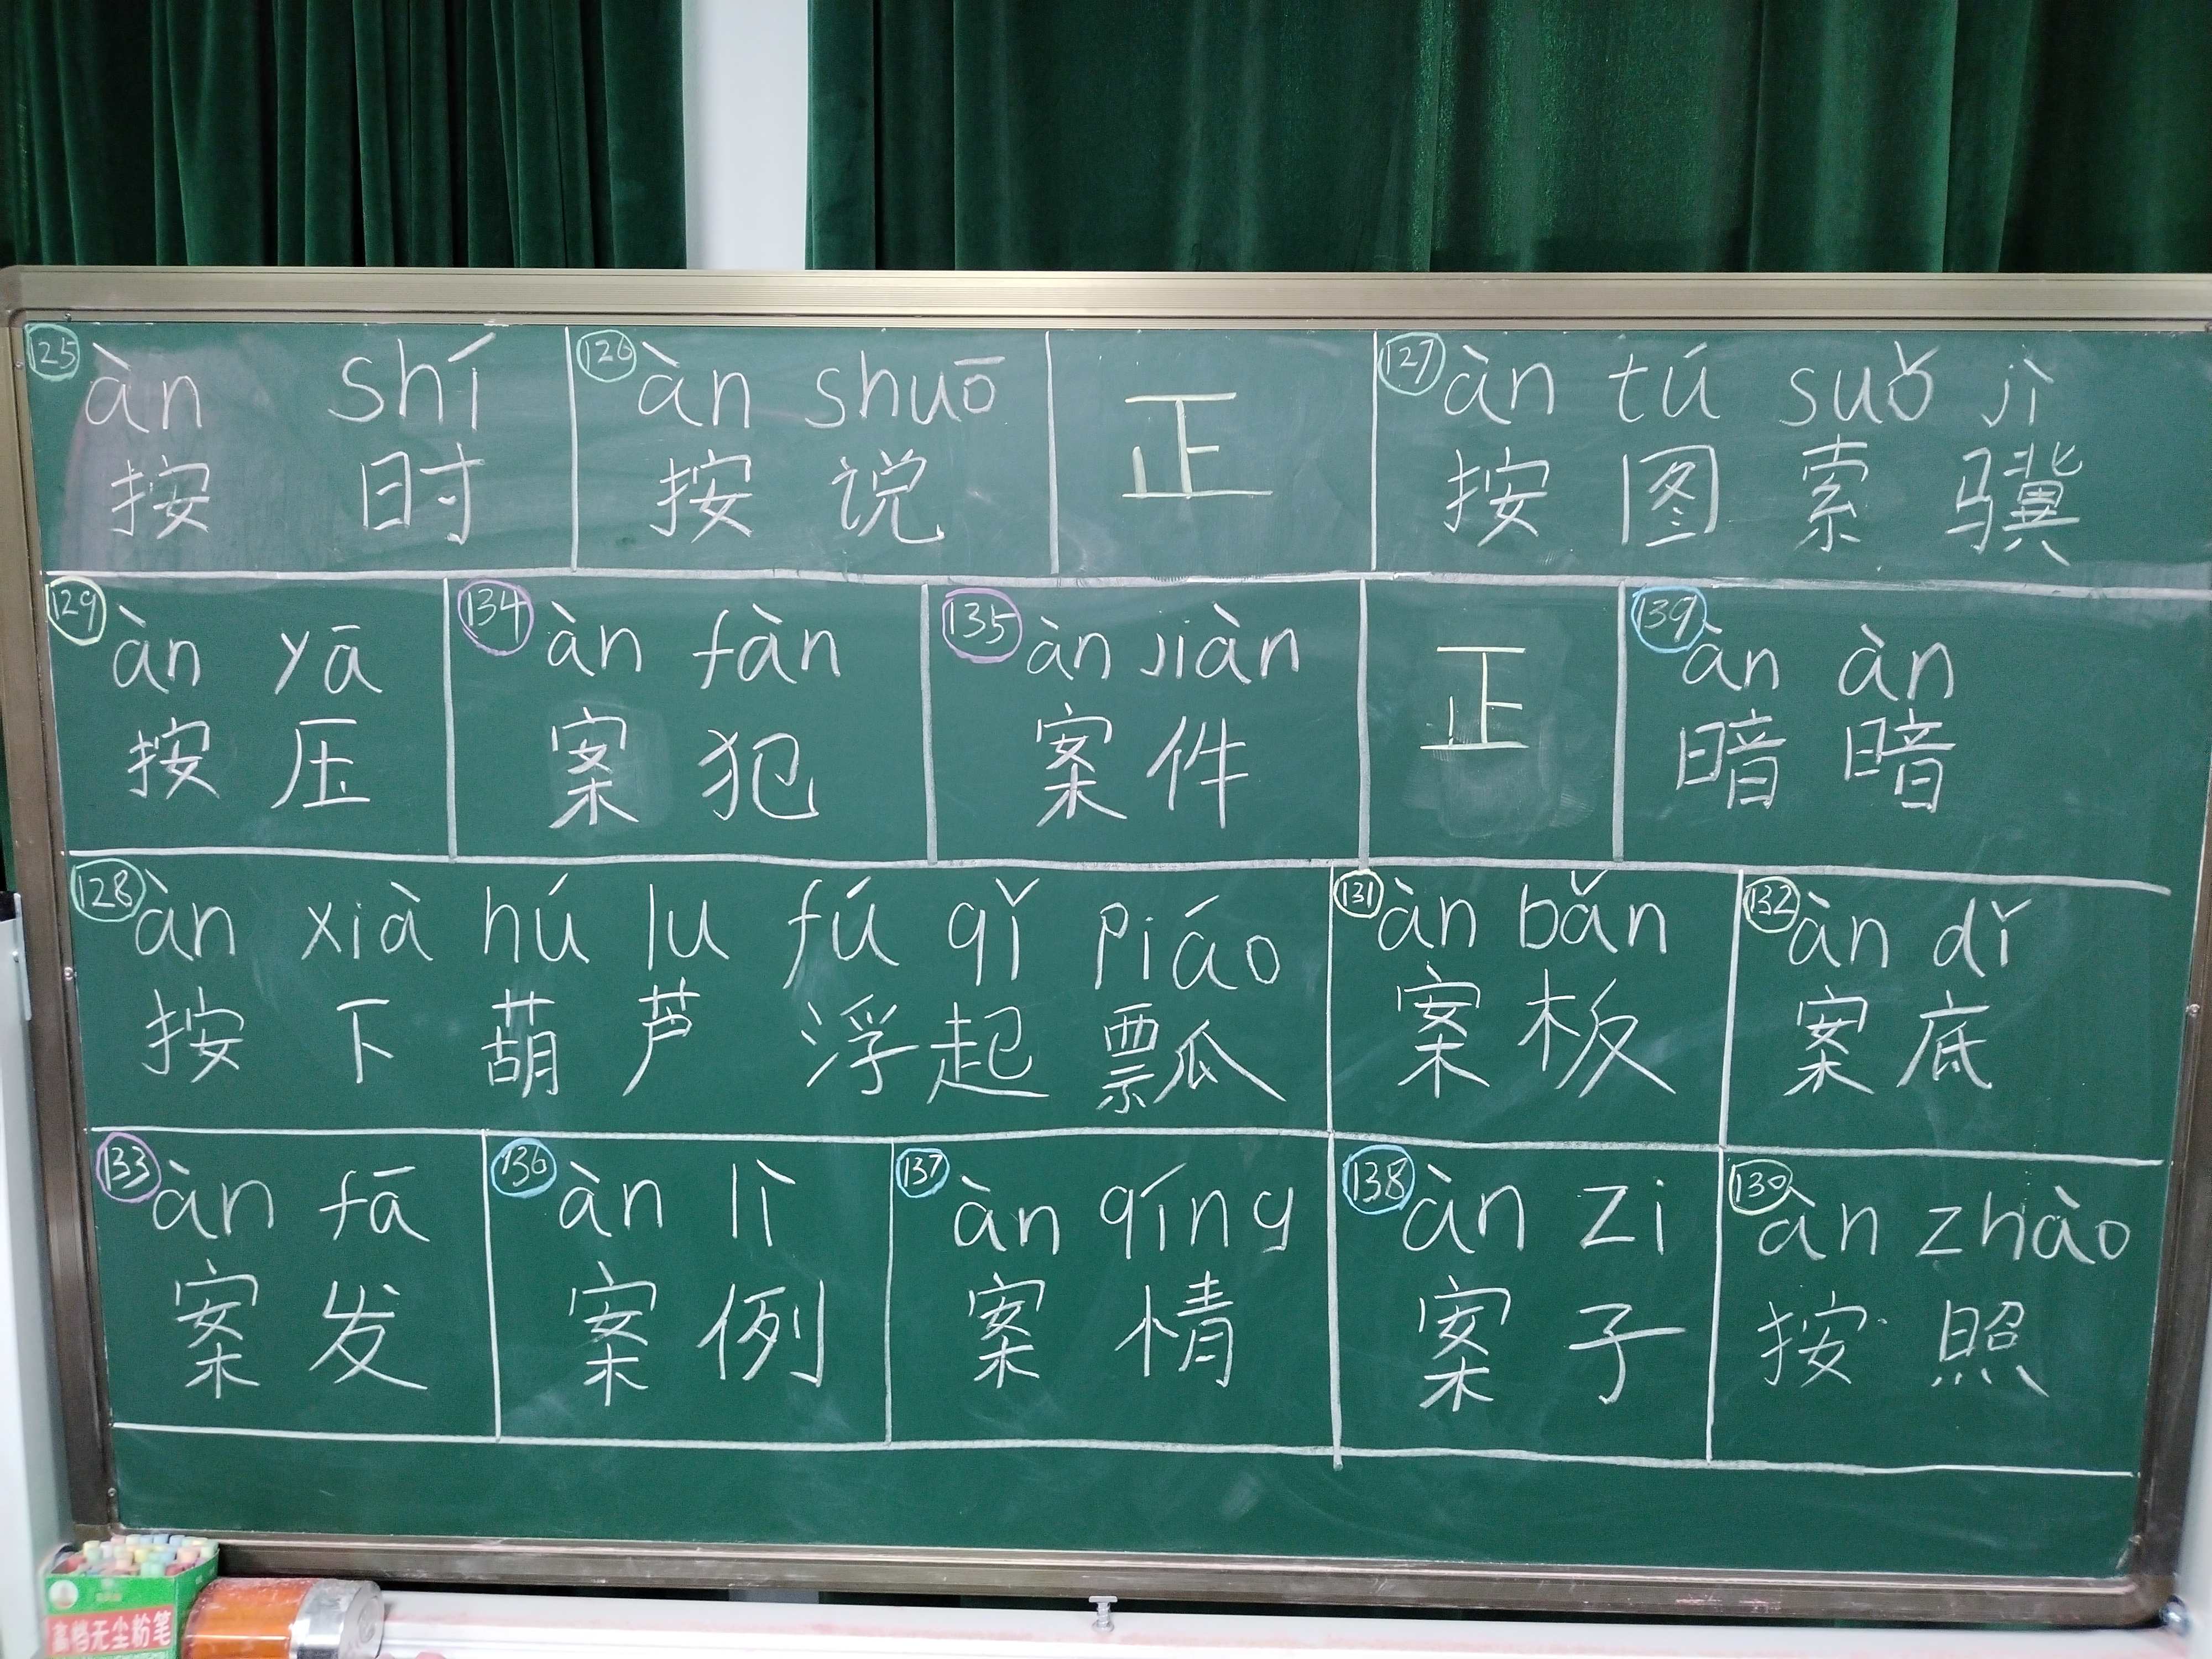 125 àn shí 126 àn shuō 正 127 àn tú suǒ jì
按时 按说 按图索骥
129 àn yā 134 àn fàn 135 àn jiàn 正 139 àn àn
按压 案犯 案件 暗暗
128 àn xià hú lu fú qǐ piáo 131 àn bǎn 132 àn dǐ
按下葫芦浮起瓢 案板 案底
133 àn fā 136 àn lì 137 àn qíng 138 àn zi 130 àn zhào
案发 案例 案情 案子 按照
高档无尘粉笔